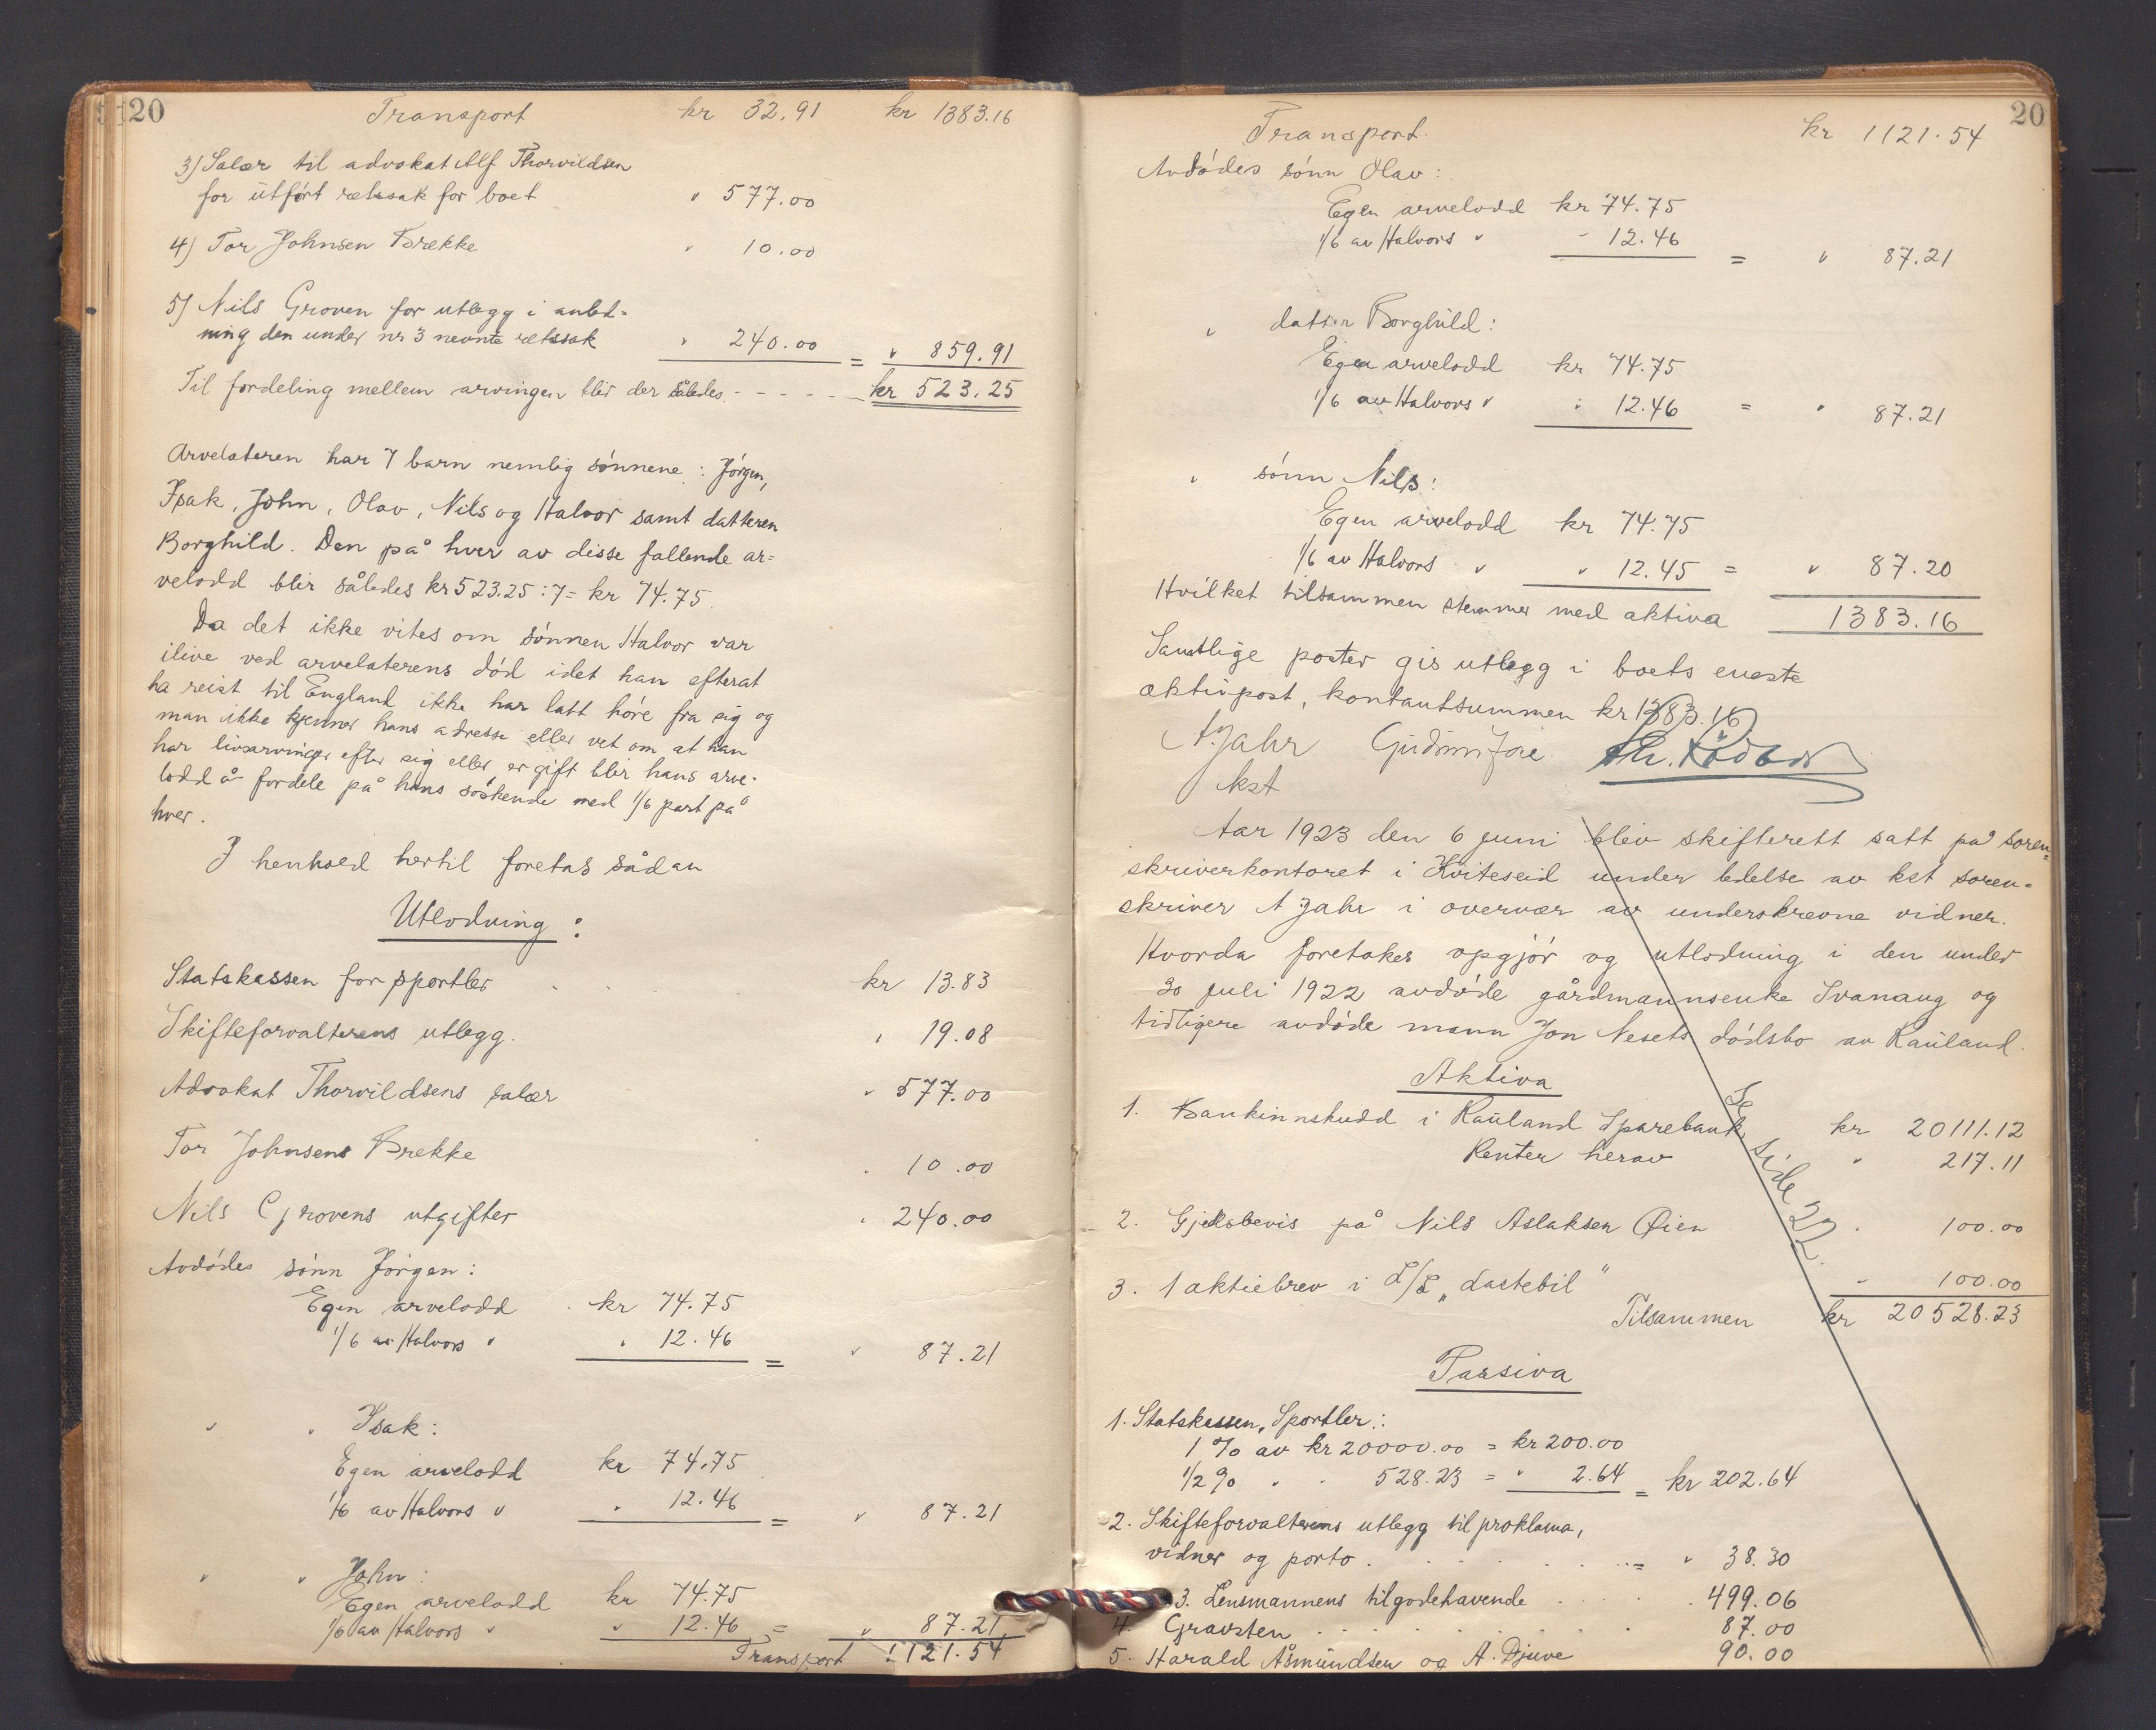 20
Transport kr 32.91 kr 1383.16
3) Salær til advokat Alf Thorvildsen
for utført retssak for boet " 577.00
4) Tor Johnsen Brekke " 10.00
5) Nils Groven for utlegg i anled=
ning den under nr 3 nevnte retssak " 240.00 = " 859.91
Til fordeling mellem arvingen blir der således - - - - - kr 523.25
Arvelateren har 7 barn nemlig sønnene: Jørgen,
Isak, John, Olav, Nils og Halvor samt datteren
Borghild. Den på hver av disse fallende ar=
velodd blir således kr 523.25 : 7 = kr 74.75.
Da det ikke vites om sønnen Halvor var
ilive ved arvelaterens død idet han efterat
ha reist til England ikke har latt høre fra sig og
man ikke kjenner hans adresse eller vet om at han
har livsarvinger efter sig eller er gift blir hans arve-
lodd å fordele på hans søskende med 1/6 part på
hver.
I henhold hertil foretas sådan
Utlodning:
Statskassen for sportler kr 13.83
Skifteforvalterens utlegg. " 19.08
Advokat Thorvildsens salær " 577.00
Tor Johnsens Brekke " 10.00
Nils Grovens utgifter " 240.00
Avdødes sønn Jørgen:
Egen arvelodd kr 74.75
1/6 av Halvors " " 12.46 = " 87.21
" " Isak:
Egen arvelodd kr 74.75
1/6 av Halvors " " 12.46 = " 87.21
" " John:
Egen arvelodd kr 74.75
1/6 av Halvors " " 12.46 = " 87.21
Transport 1121.54
20
Transport. kr 1121.54
Avdødes sønn Olav:
Egen arvelodd kr 74.75
1/6 av Halvors " - 12.46 = " 87.21
" datter Borghild:
Egen arvelodd kr 74.75
1/6 av Halvors " " 12.46 = " 87.21
" sønn Nils:
Egen arvelodd kr 74.75
1/6 av Halvors " " 12.45 = " 87.20
Hvilket tilsammen stemmer med aktiva 1383.16
Samtlige poster gis utlegg i boets eneste
aktivpost, kontantsummen kr 1383.16
A. Jahr
kst
Aar 1923 den 6 juni blev skifterett satt på soren=
skriverkontoret i Kviteseid under ledelse av kst soren-
skriver A Jahr i overvær av underskrevne vidner.
Hvorda foretakes opgjør og utlodning i den under
30 juli 1922 avdøde gårdmannsenke Svanaug og
tidligere avdøde mann Jon Nesets dødsbo av Rauland.
Se side 22.
Aktiva
1. Bankinnskudd i Rauland Sparebank kr 20111.12
Renter herav " 217.11
2. Gjeldsbevis på Nils Aslaksen Øien " 100.00
3. 1 aktiebrev i L/L „Lastebil" " 100.00
Tilsammen kr 20528.23
Passiva
1. Statskassen, Sportler:
1 % av kr 20000.00 = kr 200.00
1/2 % " " 528.23 = " 2.64 = kr 202.64
2. Skifteforvalterens utlegg til proklama,
vidner og porto. = " 38.30
3. Lensmannens tilgodehavende 499.06
4. Gravsten 87.00
5. Harald Åsmundsen og A. Djuve 90.00